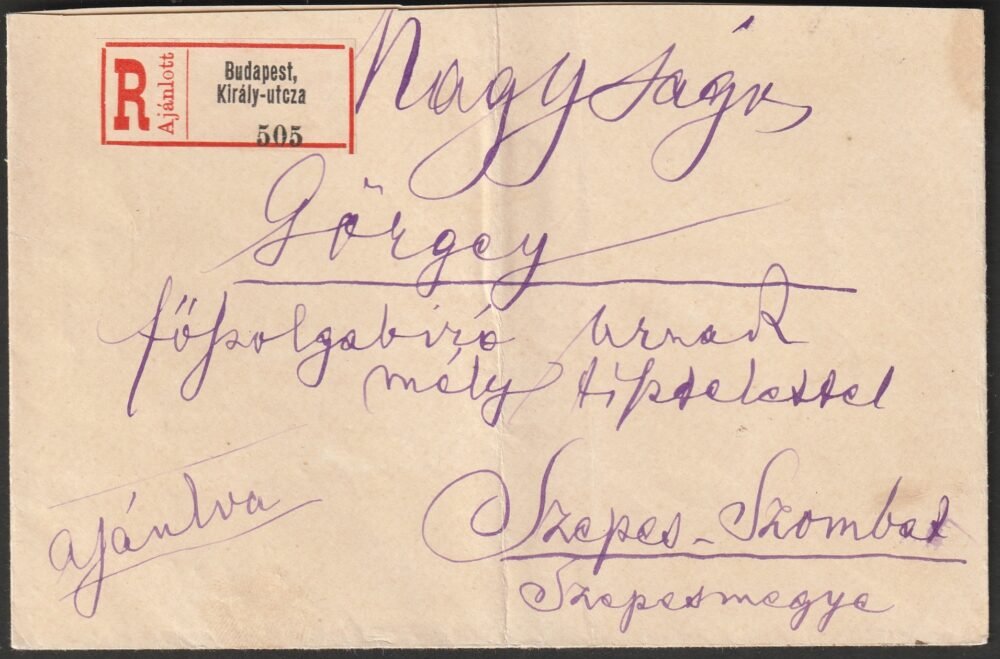 R Ajánlott
Budapest,
Király-utcza
505
Nagyságos
Görgey
főszolgabíró urnak
mély tisztelettel
ajánlva
Szepes-Szombat
Szepesmegye